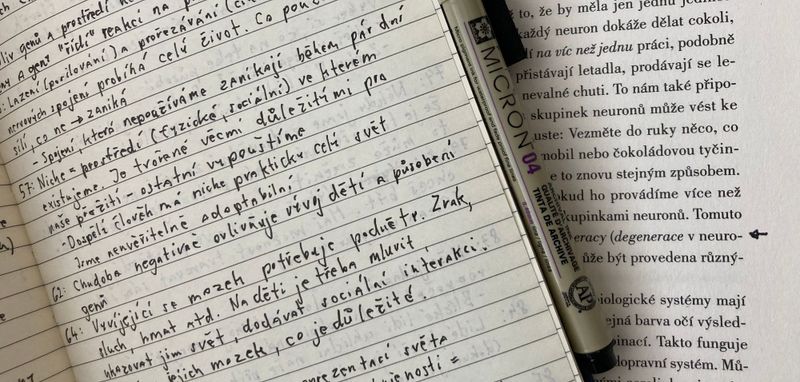 liv genů a prostředí n
ny a agent "řídí" reakci na p
: Ladění (posilování) a prořezávání (
nervových spojení probíhá celý život. Co pou
sílí, co ne → zaniká
- Spojení, která nepoužíváme zanikají během pár dní
57: Niche = prostředí (fyzické, sociální) ve kterém
existujeme. Je tvořené věcmi důležitými pro
naše přežití - ostatní vypouštíme
- Dospělí člověk má niche prakticky celý svět
Jsme neuvěřitelně adaptabilní
62: Chudoba negativně ovlivňuje vývoj dětí a působení
genů
64: Vyvíjející se mozek potřebuje podněty. Zrak,
sluch, hmat atd. Na děti je třeba mluvit,
ukazovat jim svět, dodávat sociální interakci.
jejich mozek, co je důležité.
prezentací světa
jenosti =
MICRON 04
QUALITÉ D'ARCHIVAGE
TINTA DE ARCHIVE
AP
to, že by měla jen jednu jedi
každý neuron dokáže dělat cokoli,
dí na víc než jednu práci, podobně
přistávají letadla, prodávají se le-
nevalné chuti. To nám také připo-
skupinek neuronů může vést ke
uste: Vezměte do ruky něco, co
mobil nebo čokoládovou tyčin-
e to znovu stejným způsobem.
okud ho provádíme více než
kupinkami neuronů. Tomuto
eracy (degenerace v neuro-
ůže být provedena různý-
biologické systémy mají
ejná barva očí výsled-
binací. Takto funguje
dopravní systém. Mů-